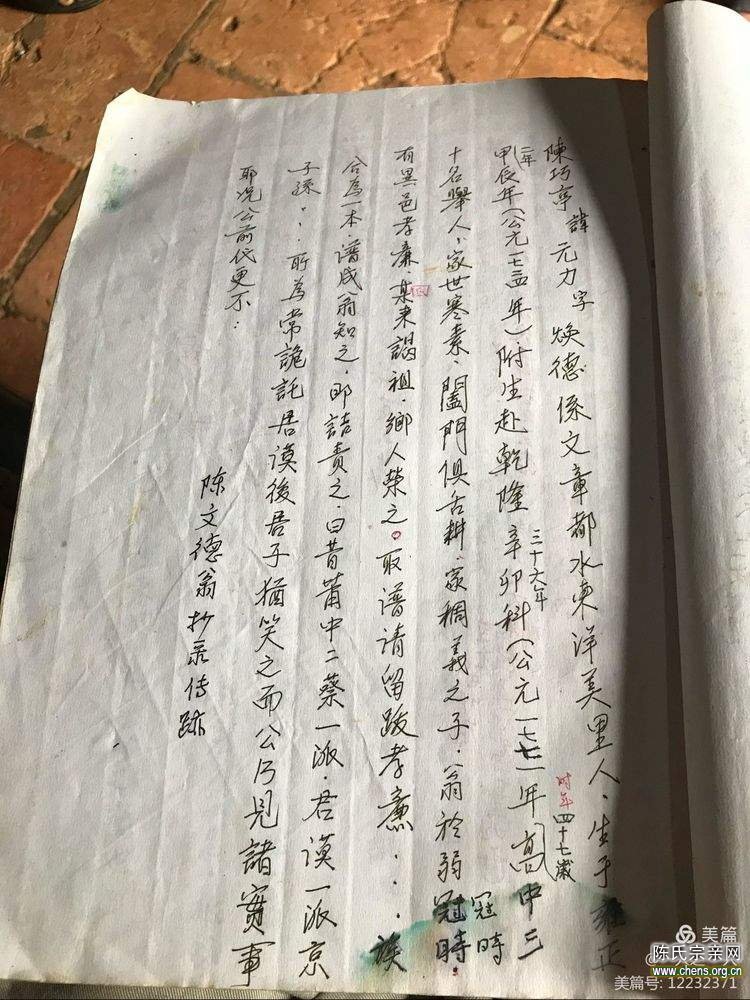 陳巧亭 諱 元力 字 焕德 係文章都水東洋美里人、生于雍正
二年
甲辰年(公元一七二四年)附生赴乾隆辛卯科(公元一七七一年高中三
三十六年
时年四十七歲
十名舉人、家世寒素、闔門俱舌耕、家稠義之子、翁於弱冠時.
冠時
有異邑孝廉、某来謁祖、鄉人榮之。取譜请留跋孝亷...族
合為一本、譜成翁知之、即詰责之、曰昔莆中二蔡一派、君谟一派京
子孫、、所為常詭託君谟後君子猶笑之而公乃見諸實事
耶况公前代更不:
陈文德翁抄录传跡
美篇
陈氏宗亲网
www.chens.org.cn
美篇号: 12232371